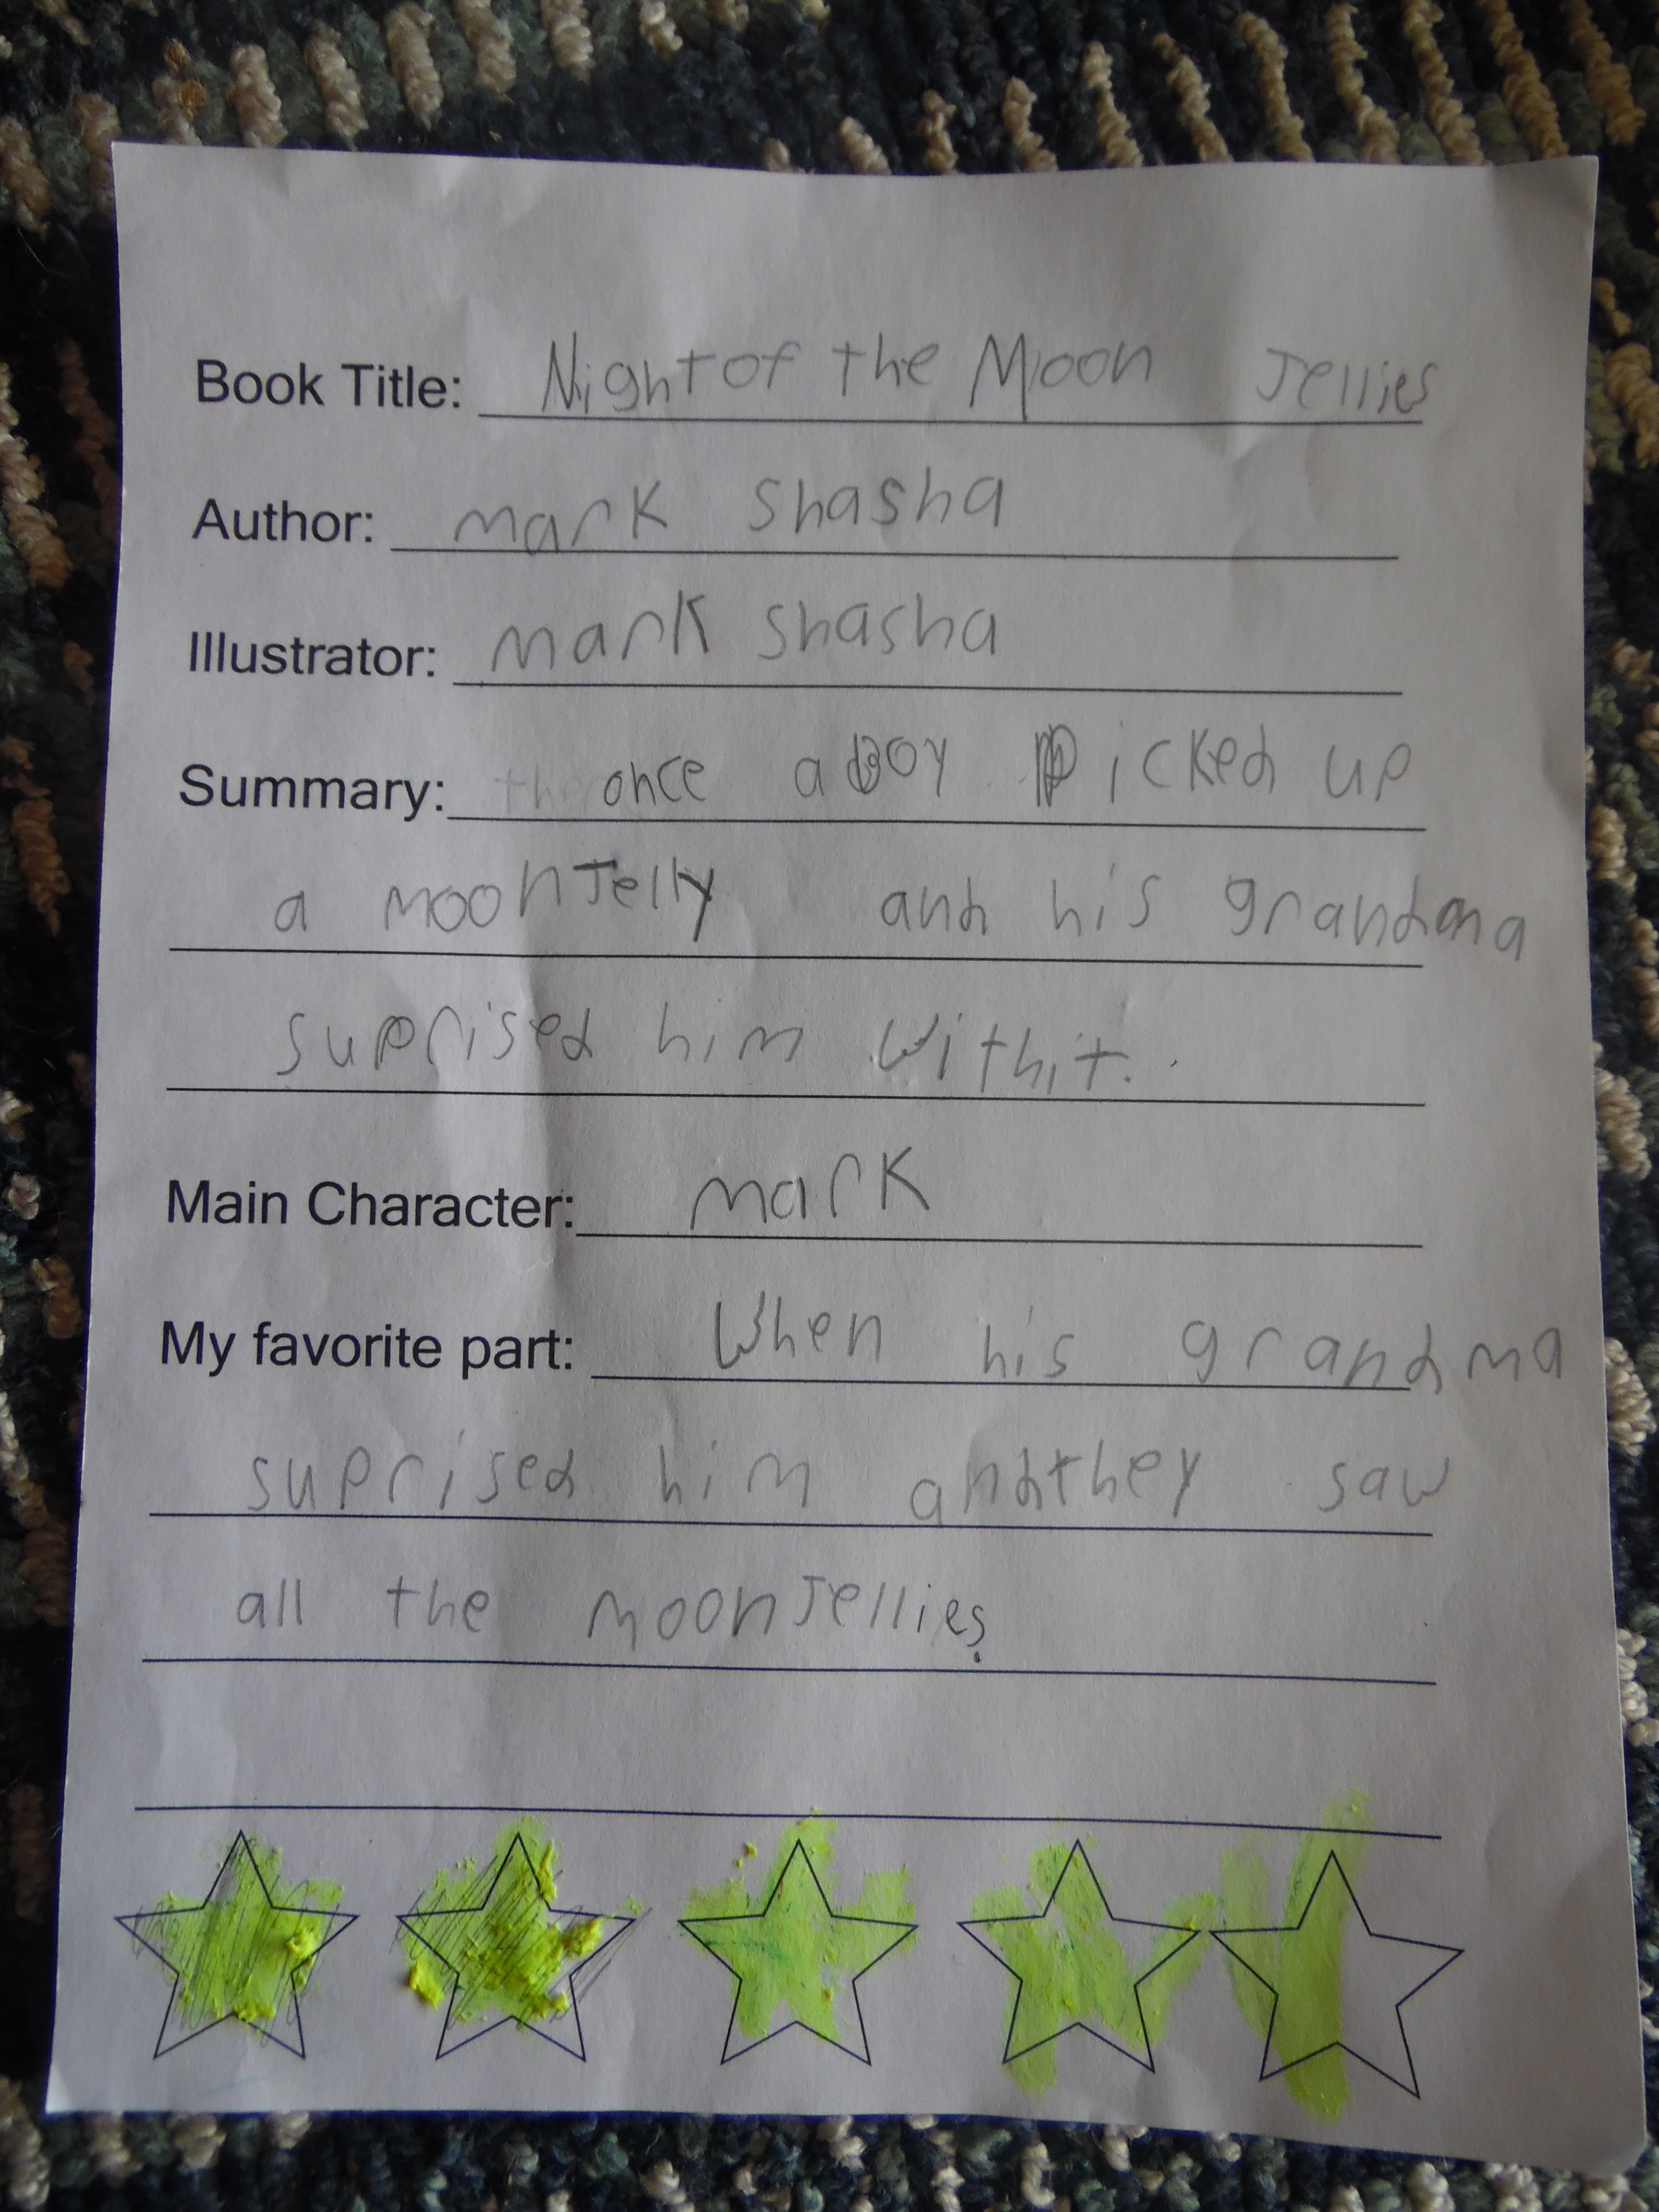 Book Title: Night of the Moon Jellies
Author: mark Shasha
Illustrator: mark shasha
Summary: once a boy Picked up
a moon Jelly and his grandma
suprised him with it.
Main Character: mark
My favorite part: When his grandma
suprised him and they saw
all the moon Jellies.